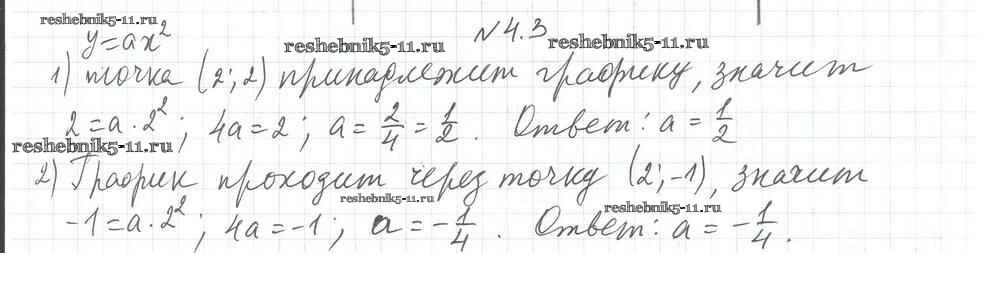 reshebnik5-11.ru
y=ax²
reshebnik5-11.ru
№4.3
reshebnik5-11.ru
1) точка (2; 2) принадлежит графику, значит
2=a·2²; 4a=2; a=2/4=1/2. Ответ: a=1/2
reshebnik5-11.ru
2) График проходит через точку (2; -1), значит
reshebnik5-11.ru
reshebnik5-11.ru
-1=a·2²; 4a=-1; a=-1/4. Ответ: a=-1/4.